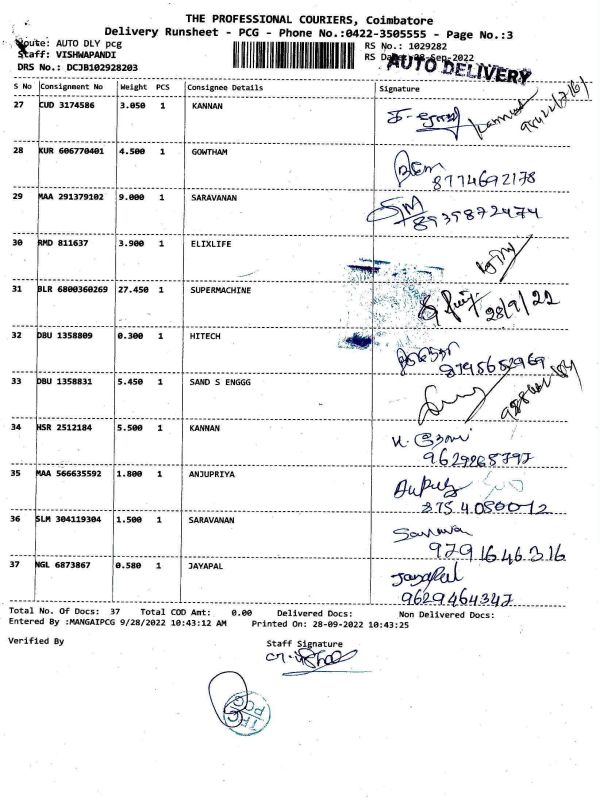 THE PROFESSIONAL COURIERS, Coimbatore
Delivery Runsheet - PCG - Phone No.:0422-3505555 - Page No.:3
Route: AUTO DLY pcg
RS No.: 1029282
Staff: VISHWAPANDI
RS Date: 28-Sep-2022
AUTO DELIVERY
DRS No.: DCJB102928203
S No Consignment No Weight PCS Consignee Details Signature
27 CUD 3174586 3.050 1 KANNAN
28 KUR 606770401 4.500 1 GOWTHAM
8774692178
29 MAA 291379102 9.000 1 SARAVANAN
8939872474
30 RMD 811637 3.900 1 ELIXLIFE
31 BLR 6800360269 27.450 1 SUPERMACHINE
28/9/22
32 DBU 1358809 0.300 1 HITECH
8795652969
33 DBU 1358831 5.450 1 SAND S ENGGG
34 HSR 2512184 5.500 1 KANNAN
35 MAA 566635592 1.800 1 ANJUPRIYA
36 SLM 304119304 1.500 1 SARAVANAN
9791646316
37 NGL 6873867 0.580 1 JAYAPAL
Jayapal
9629464347
Total No. Of Docs: 37 Total COD Amt: 0.00 Delivered Docs: Non Delivered Docs:
Entered By :MANGAIPCG 9/28/2022 10:43:12 AM Printed On: 28-09-2022 10:43:25
Verified By Staff Signature
TPC
PCG